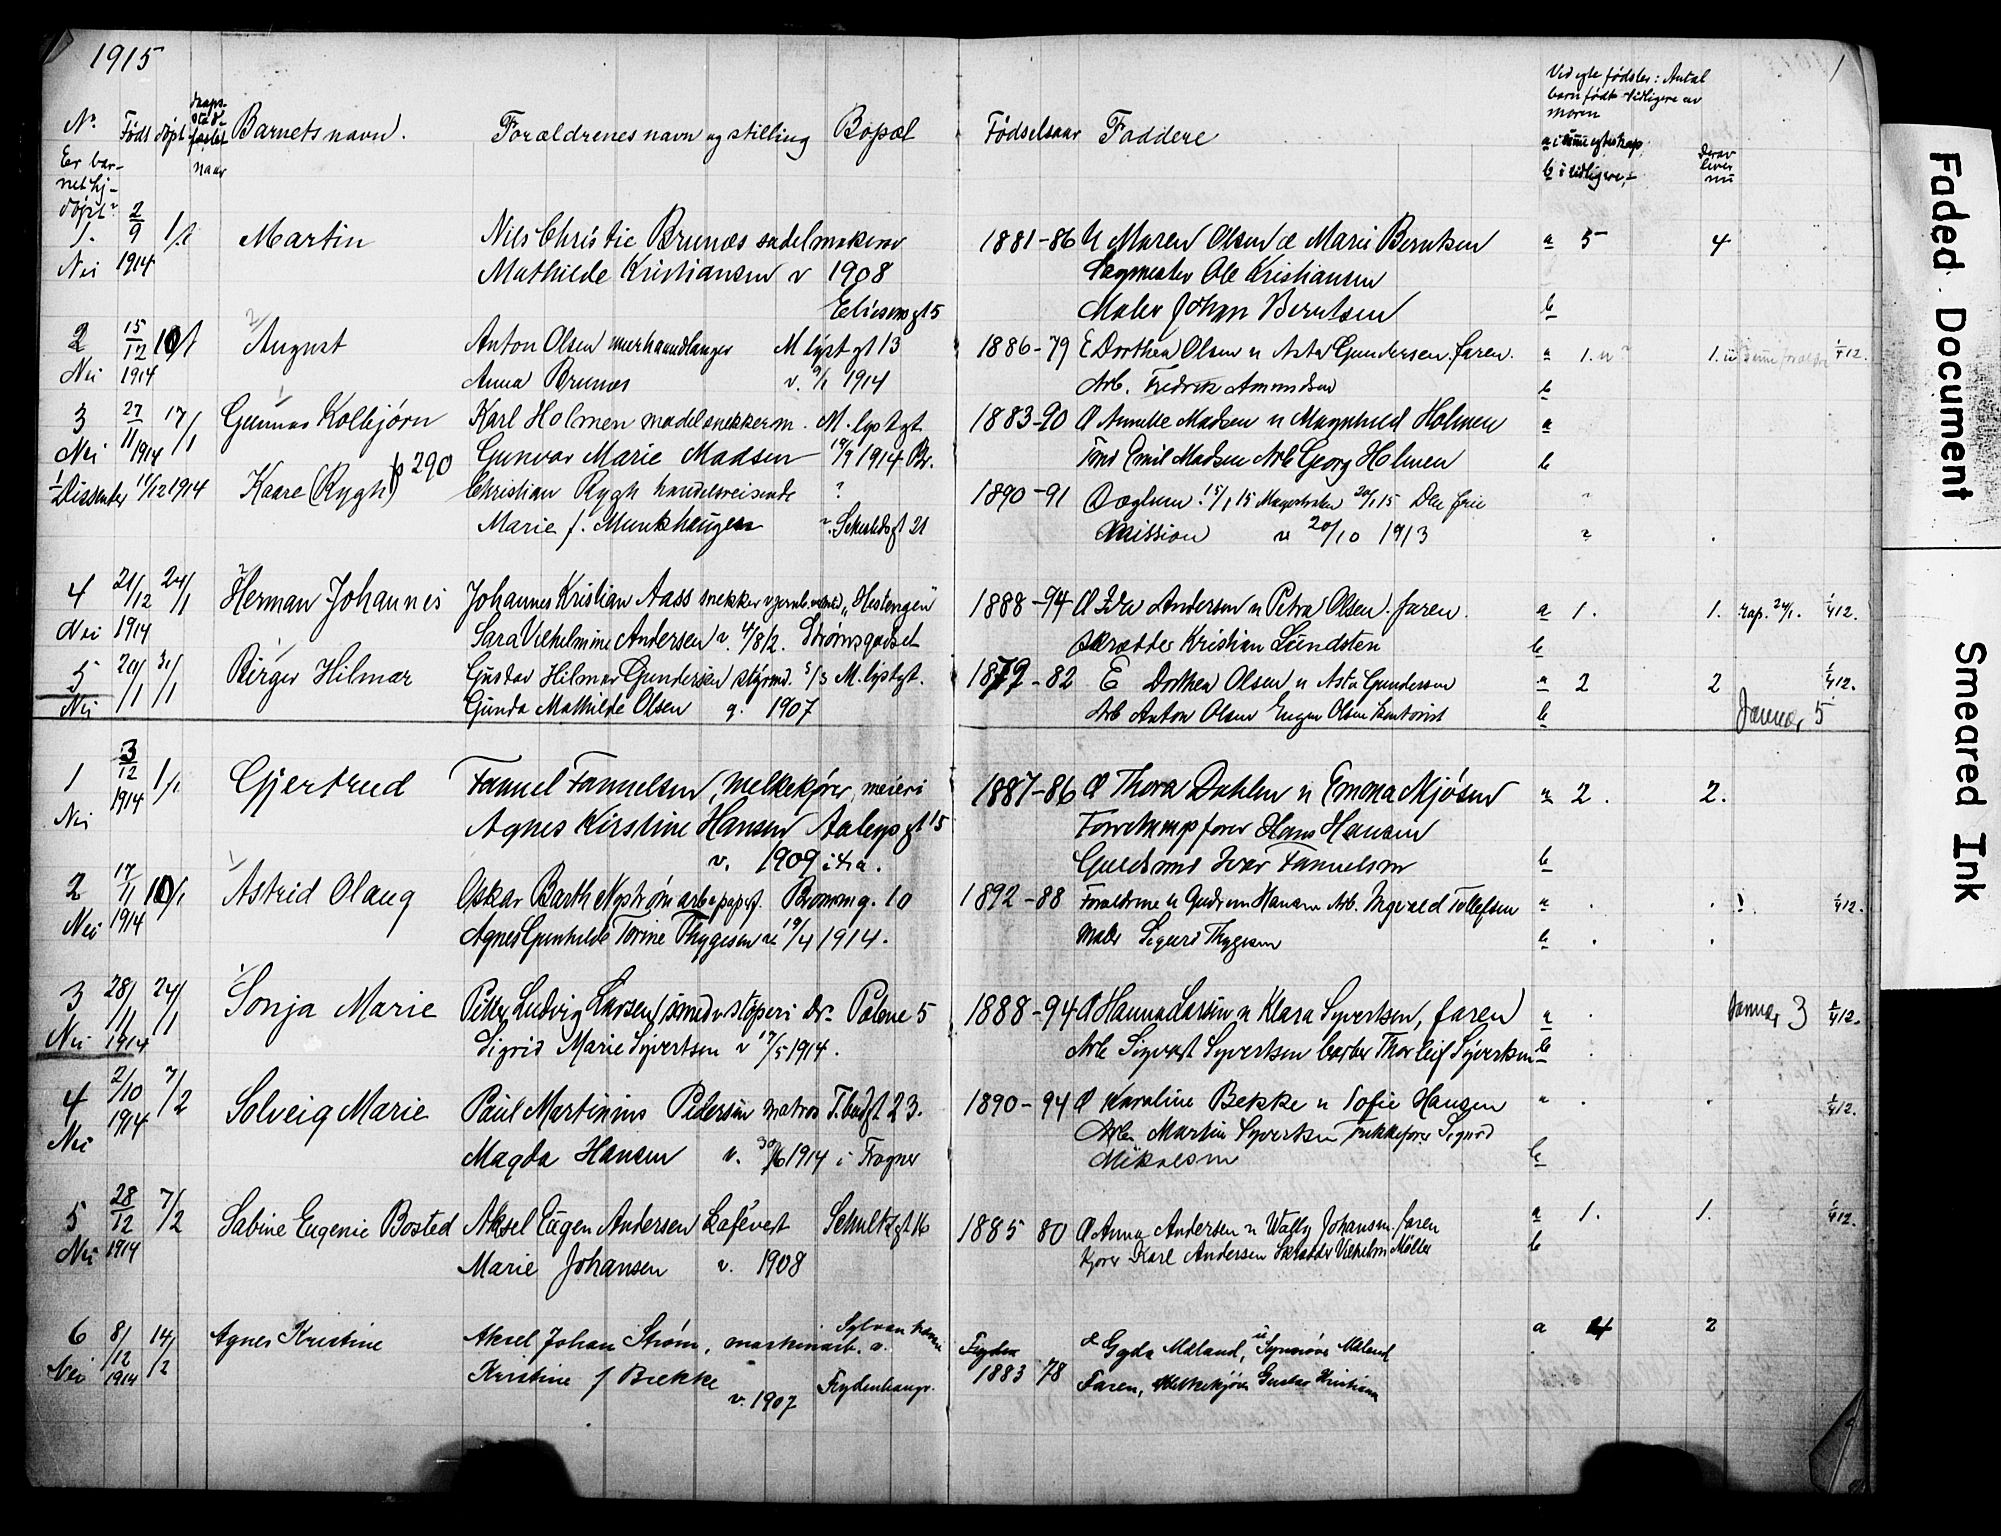 1915
1
Nr. Født døpt daaps- stad- fæstet naar Barnets navn. Forældrenes navn og stilling Bopæl Fødselsaar Faddere
Vid egte fødsler: Antal
barn født tidligere av
moren
a i egteskap,
b i tidligere
Derav
lever
nu
Er bar-
net hj-
døpt?
1. 2/9 1/1 Martin Nils Christie Brunæs sadelmaker 1881-86 Maren Olsen Marie Berntsen a 5 4
Nei 1914 Mathilde Kristiansen v 1908 Ole Kristiansen
Eliesonsgt 5 Maler Johan Berntsen b
2 15/12 10/1 August Anton Olsen murhaandlanger M lystgt 13 1886-79 E Dorthea Olsen u Asta Gundersen. faren. a 1. 1. 1/4 12.
Nei 1914 Anna Brunæs v. 1914 Arb. Fredrik Amundsen b
3 27/11 17/1 Gunnar Kolbjørn Karl Holmen modelsnekkerm. M. lystgt 1883-90 Annette Madsen u Magnhild Holmen a
Nei 1914 Gunvor Marie Madsen 1914 Br. Emil Madsen Arb Georg Holmen b
Dissenter 1914 Kaare (Rygh) p 290 Christian Rygh handelsreisende ? 1890-91 15/1 15 20/1 15 Den frie
Marie f. Munkhaugen Schultzgt 21 Mission v 20/10 1913
4 21/12 24/1 Herman Johannes Johannes Kristian Aass snekker "Hestengen" 1888-94 Ida Andersen u Petra Olsen. faren. a 1. 1. rap. 24/1. 1/4 12.
Nei 1914 Sara Vilhelmine Andersen v. 4/8 12. Strømsgodset skrædder Kristian Lundsten b
5 20/1 31/1 Birger Hilmar Gustav Hilmar Gundersen styrmd. M. lystgt. 1879-82 E Dorthea Olsen u Asta Gundersen a 2 2 1/4 12.
Nei Gunda Mathilde Olsen g. 1907 Arb Anton Olsen Eugen Olsen kontorist b Januar 5
1 3/12 1/1 Gjertrud Fanuel Fanuelsen, melkekjører, meieri 1887-86 Thora Dahlen u Emma Mjøsen a 2. 2.
Nei 1914 Agnes Kirstine Hansen Aalepsgt 15 Hans Hansen
v. 1909 Guldsmd Ivar Fanuelsen b
2 17/1 10/1 Astrid Olaug Oskar Barth Nystrøm arb papirf. Bromsg. 10 1892-88 Forældrene u Gudrun Hansen Arb. Ingvald Tollefsen a . 1/4 12.
Nei 1914 Agnes Gunhilde Torine Thygesen v 19/4 1914. Maler Sigurd Thygesen b . .
3 28/11 24/1 Sonja Marie Petter Ludvig Larsen smed v støperi Dr. Palme 5 1888-94 Hanna Larsen u Klara Syvertsen, faren a . Januar 3 1/4 12.
Nei 1914 Sigrid Marie Syvertsen v 17/5 1914. Arb Sigvart Syvertsen barber Thorleif Syvertsen b .
4 2/10 7/2 Solveig Marie Paul Martinius Pedersen matros T.budgt 23. 1890-94 Karoline Bekke u Sofie Hansen a . . 1/4 12.
Nei 1914 Magda Hansen v. 30/6 1914 i Fragner Arb. Martin Syvertsen Sigurd
Mikalsen b
5 28/12 7/2 Sabine Eugenie Bosted Aksel Eugen Andersen kafévert Schultzgt 16 1885 80 Anna Andersen u Wally Johansen. faren a 1. 1. 1/4 12.
Nei 1914 Marie Johansen v. 1908 Kjører Karl Andersen Skrædder Vilhelm Møller b
6 8/12 14/2 Agnes Kristine Aksel Johan Strøm, maskinarb. v. 1883 78 Gyda Mæland, Synnøve Mæland a 4 2
Nei 1914 Kristine f Brekke Frydenhaugv. Faren, Melkekjører Gustav Kristiansen
v. 1907
Faded Document
Smeared Ink